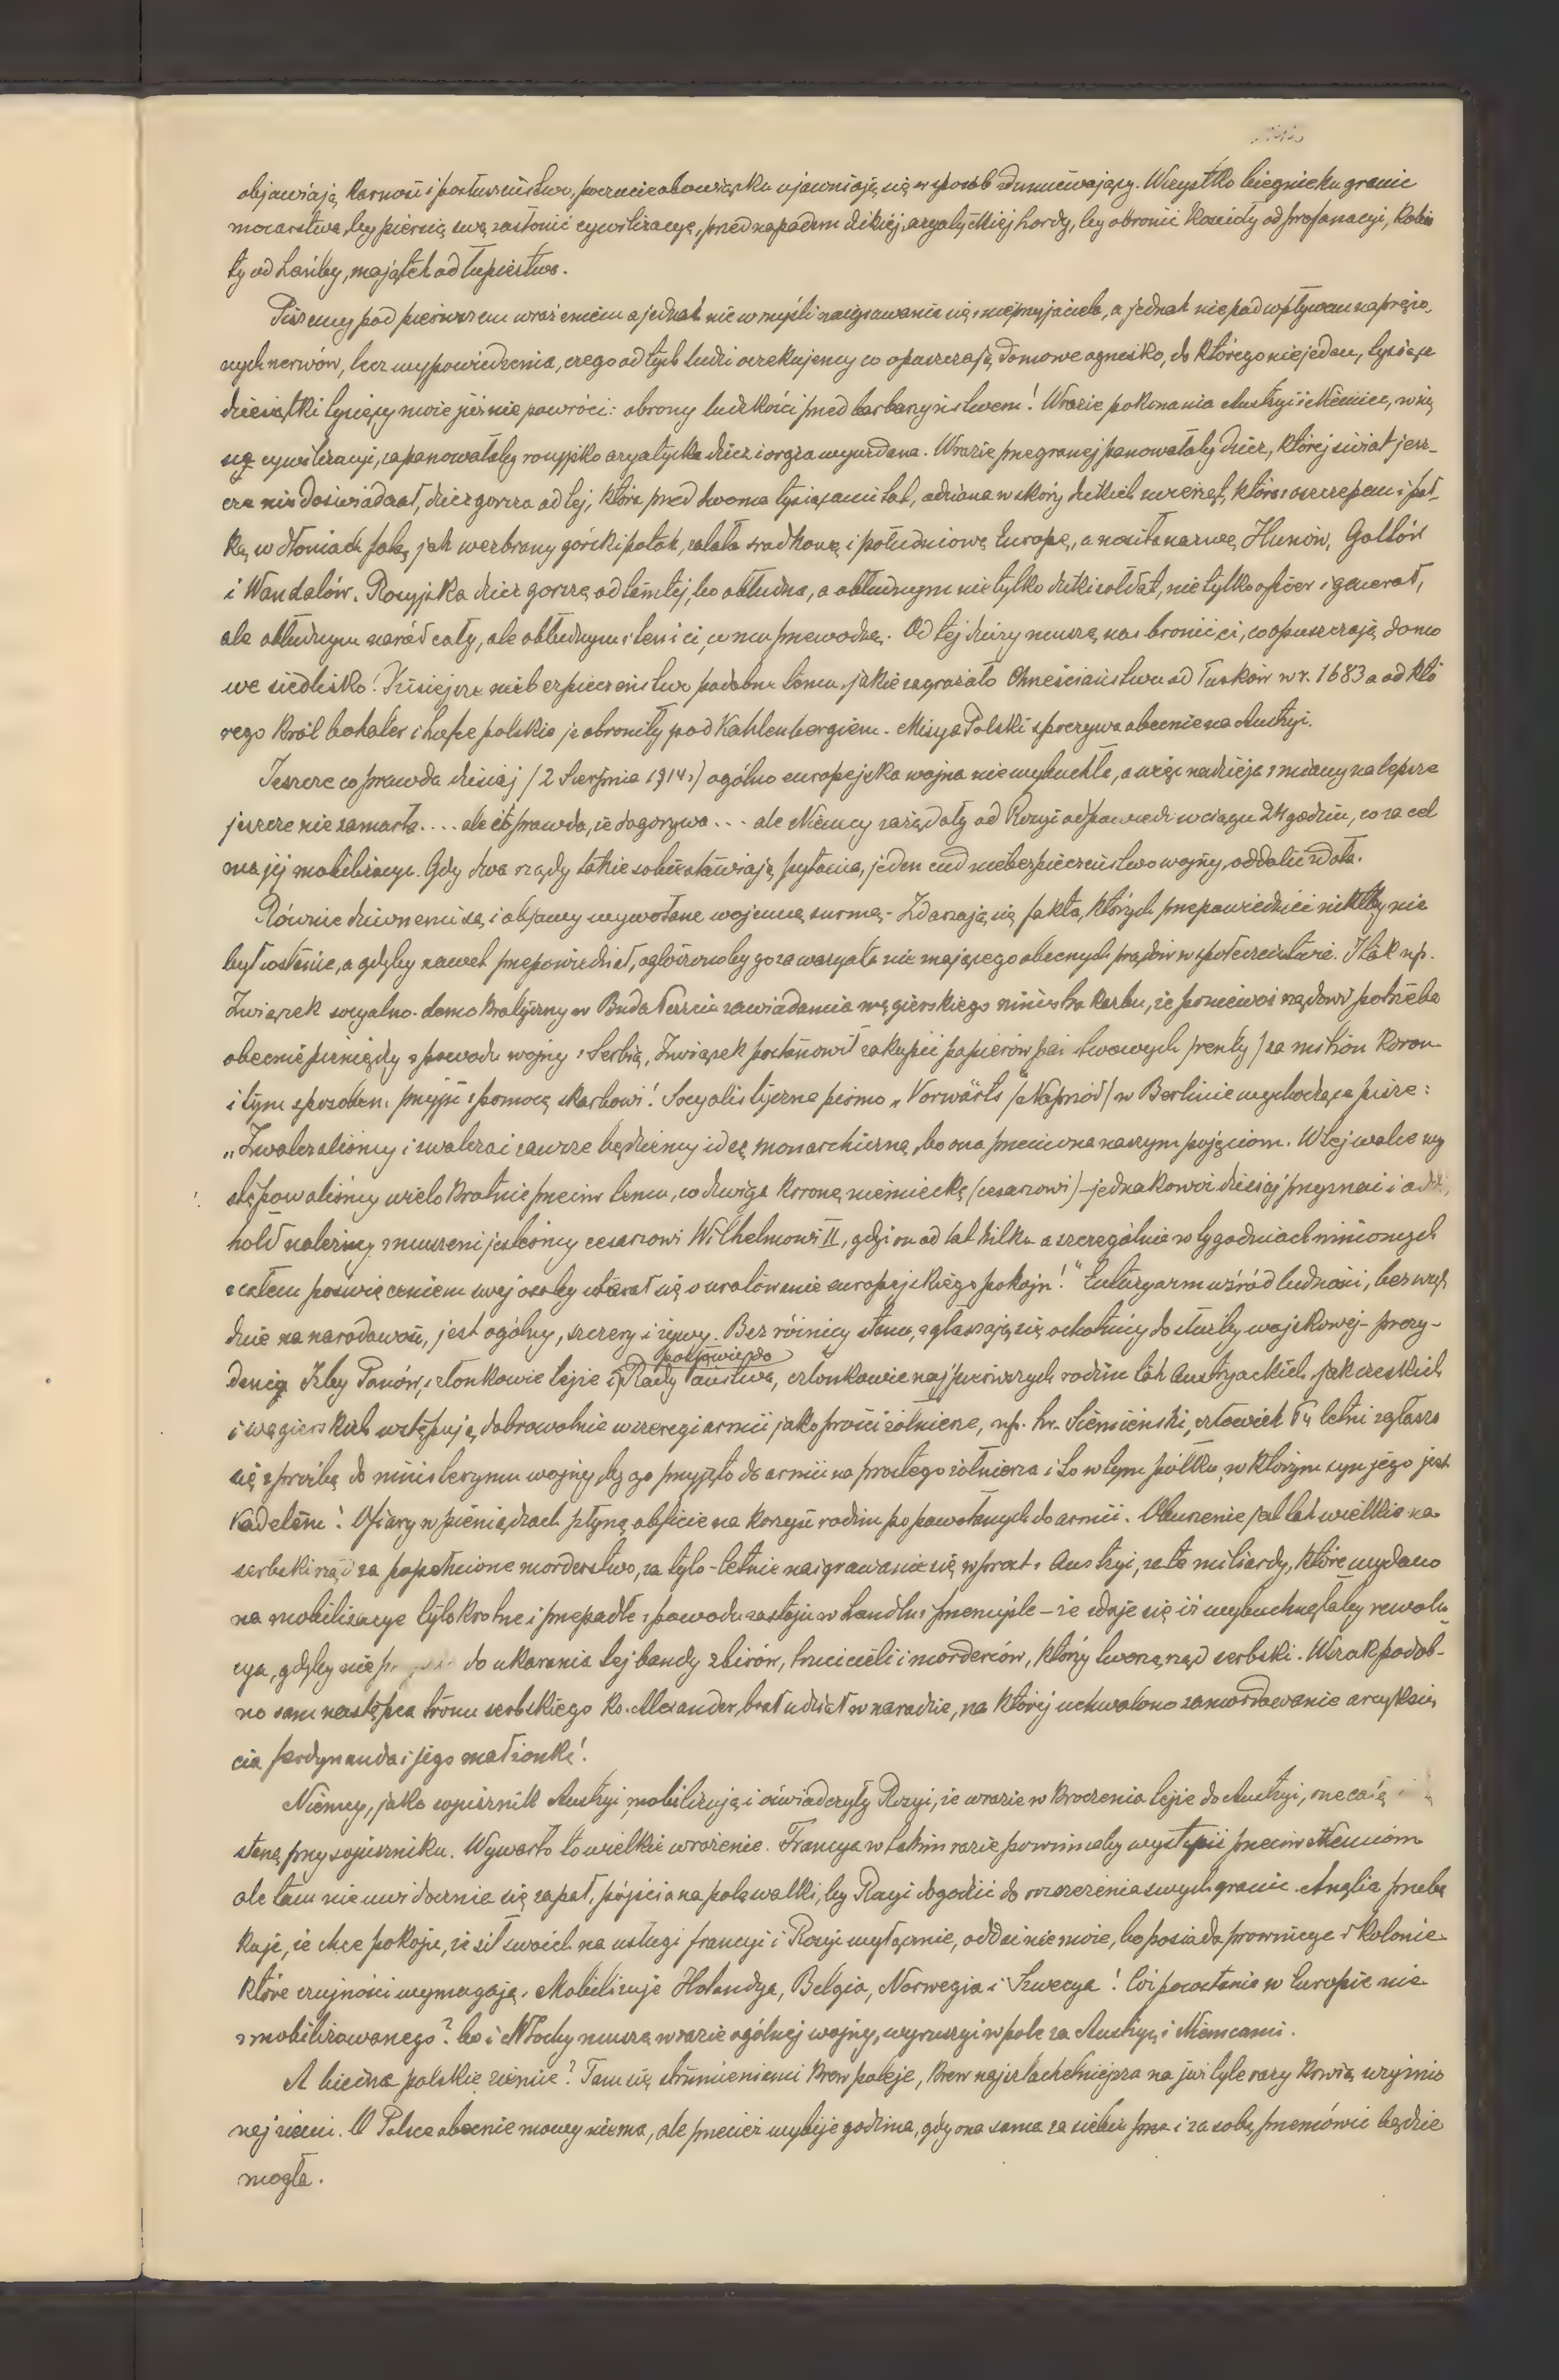 objawiają karność i posłuszeństwo, poczucie obowiązku ujawniają się w sposób zdumiewający. Wszystko biegnie ku granic
mocarstwa, by piersią swą zasłonić cywilizacyę, przed napadem dzikiej, azyatyckiej hordy, by obronić kościoły od profanacyi, kobie
ty od hańby, majątek od łupiestwa.
Piszemy pod pierwszem wrażeniem a jednak nie w myśli naigrawania się z nieprzyjaciela, a jednak nie pod wpływem napręże-
nych nerwów, lecz wypowiedzenia, czego od tych ludzi oczekujemy co opuszczają domowe ognisko, do którego niejeden, tysiące
dziesiątki tysięcy może już nie powróci: obrony ludzkości przed barbarzyństwem! W razie pokonania Austryi i Niemiec,
cywilizacyi, zapanowałaby rosyjsko azyatycka dzicz i orgia wyuzdana. W razie przegranej panowałaby dzicz, której świat jesz-
cze nie doświadczał, dzicz gorsza od tej, która przed dwoma tysiącami lat, odziana w skóry dzikich zwierząt, która z oszczepem i pał-
ką w dłoniach falą, jak wezbrany górski potok, zalała środkową i południową Europę, a nosiła nazwę Hunów, Gotów
i Wandalów. Rosyjska dzicz gorszą od tamtej, bo obłudna, a obłudnym nie tylko dziki sołdat, nie tylko oficer i generał,
ale obłudnym naród cały, ale obłudnym i ten i ci, co mu przewodzą. Od tej dziczy muszą nas bronić ci, co opuszczają domo
we siedlisko! Dzisiejsze niebezpieczeństwo podobne temu, jakie zagrażało Chrześciaństwu od Turków w r. 1683 a od któ
rego król bohater i hufce polskie je obroniły pod Kahlenbergiem. Misya Polski spoczywa obecnie na Austryi.
Jeszcze co prawda dzisiaj /2 Sierpnia 1914 r/ ogólno europejska wojna nie wybuchła, a więc nadzieja zmiany na lepsze
jeszcze nie zamarła.... ale coprawda, że dogorywa... ale Niemcy zażądały od Rosyi odpowiedzi w ciągu 24 godzin, co za cel
ma jej mobilizacya. Gdy dwa rządy takie sobie stawiają pytania, jeden cud niebezpieczeństwo wojny, oddalić zdoła.
Równie dziwnemi są i objawy wywołane wojenną surmą. Zdarzają się fakta, których przepowiedzieć nikt by nie
był w stanie, a gdyby nawet przepowiedział, ogłoszonoby go za waryata nie mającego obecnych prądów w społeczeństwie. I tak np.
Związek socyalno-demokratyczny w Buda Peszcie zawiadamia węgierskiego ministra skarbu, że ponieważ rządowi potrzeba
obecnie pieniędzy z powodu wojny z Serbią, Związek postanowił zakupić papierów państwowych /renty/ za milion koron
i tym sposobem przyjść z pomocą skarbowi! Socyalistyczne pismo „Vorwärts /Naprzód/ w Berlinie wychodzące pisze:
„Zwalczaliśmy i zwalczać zawsze będziemy ideę monarchiczną, bo ona przeciwna naszym pojęciom. W tej walce wy
stępowaliśmy wielokrotnie przeciw temu, co dźwiga koronę niemiecką (cesarzowi) - jednakowoż dzisiaj przyznać i odd
hołd należny zmuszeni jesteśmy cesarzowi Wilhelmowi II, gdyż on od lat kilku a szczególnie w tygodniach minionych
z całem poświęceniem swej osoby starał się o uratowanie europejskiego pokoju!" Entuzyazm wśród ludności, bez wzglę
du na narodowość, jest ogólny, szczery i żywy. Bez różnicy stanu, zgłaszają się ochotnicy do służby wojskowej - prezy-
denci Izby Panów, członkowie tejże i posłowie do Rady Państwa, członkowie najpierwszych rodzin tak Austryackich jak czeskich
i węgierskich wstępują dobrowolnie w szeregi armii jako prości żołnierze, np. hr. Siemieński, człowiek letni zgłasza
się z prośbą do ministeryum wojny, by go przyjęto do armii na prostego żołnierza i to w tym półku, w którym syn jego jest
kadetem! Ofiary w pieniądzach płyną obficie na korzyść rodzin po powołanych do armii. Oburzenie jest tak wielkie na
serbski rząd za popełnione morderstwo, za tylo-letnie naigrawanie się wprost z Austryi, za te miliardy, które wydano
na mobilizacye tylokrotne i przepadłe z powodu zastoju w handlu i przemyśle - że zdaje się iż wybuchnęłaby rewolu
cya, gdyby nie do ukarania tej bandy zbirów, trucicieli i morderców, którzy tworzą rząd serbski. Wszak podob-
no sam następca tronu serbskiego ks. Alexander, brał udział w naradzie, na której uchwalono zamordowanie arcyksię
cia ferdynanda i jego małżonkę!
Niemcy, jako sojusznik Austryi, mobilizują i oświadczyły Rosyi, że w razie wkroczenia tejże do Austryi, one całą
staną przy sojuszniku. Wywarło to wielkie wrażenie. Francya w takim razie powinnaby wystąpić przeciw Niemcom
ale tam nie uwidocznia się zapał, pójścia na pola walki, by Rosyi dogodzić do rozszerzenia swych granic. Anglia przebą
kuje, że chce pokoju, że sił swoich na usługi francyi i Rosyi wyłącznie, oddać nie może, bo posiada prowincye i kolonie
które czujności wymagają. Mobilizuje Holandya, Belgia, Norwegia i Szwecya! Cóż pozostanie w Europie nie
zmobilizowanego? bo i Włochy muszą w razie ogólnej wojny, wyruszyć w pole za Austryą i Niemcami.
A biedna polskie ziemie? Tam się strumieniami krew poleje, krew najszlachetniejsza na już tyle razy krwią użyźnio
nej ziemi. O Polsce obecnie mowy niema, ale przecież wybije godzina, gdy ona sama za siebie i za sobą przemówić będzie
mogła.